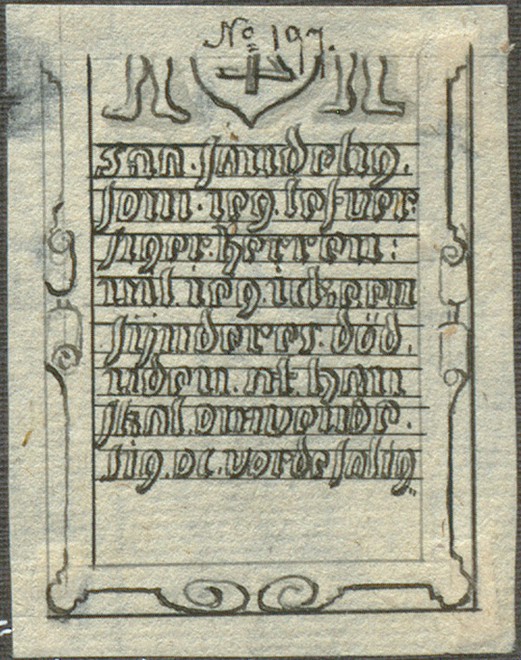 No 197.
saa. sandelig.
som. ieg. lefuer.
siger. herren:
vil. ieg. ickeen
synderes. död.
uden. at. han
skal. omvende.
sig. oc. vorde salig